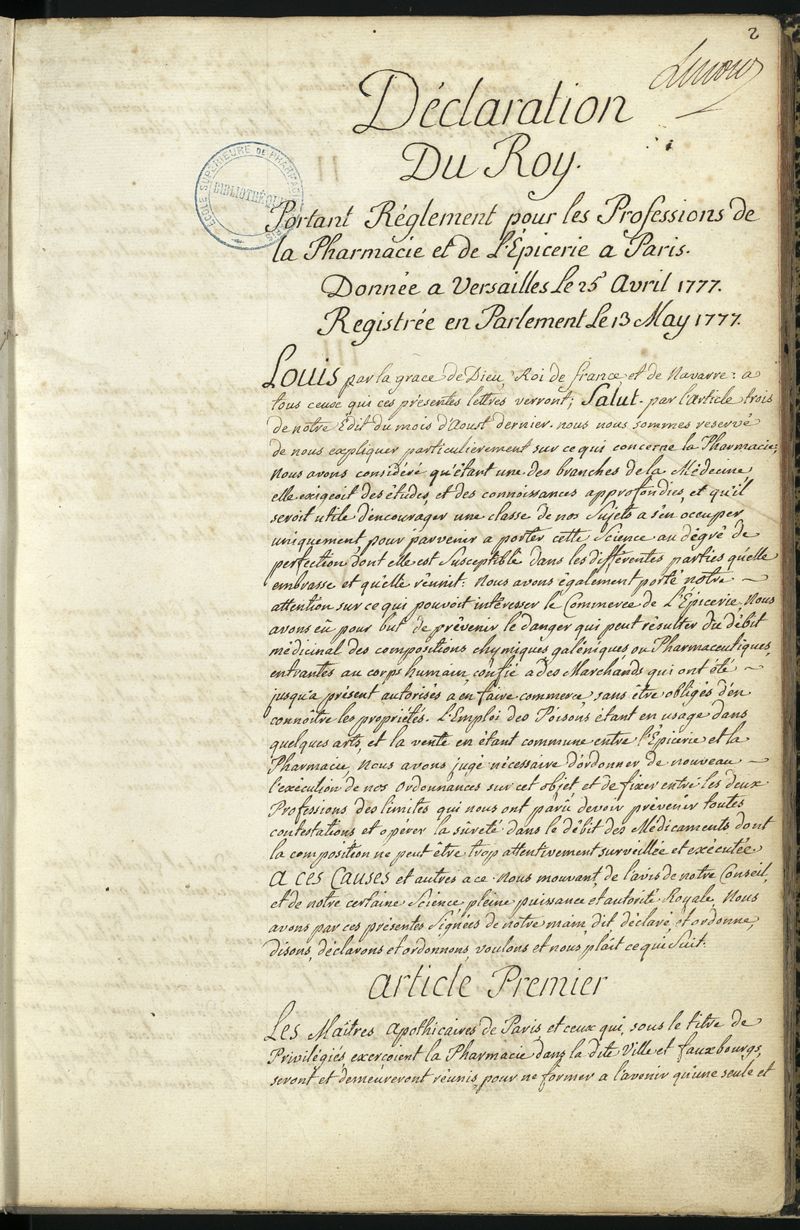 2
Déclaration
Du Roy.
ECOLE SUPÉRIEURE DE PHARMACIE
BIBLIOTHÈQUE
PARIS
Portant Réglement pour les Professions de
la Pharmacie et de L'Épicerie a Paris.
Donnée a Versailles Le 25 Avril 1777.
Registrée en Parlement Le 13 May 1777.
Louis par la grace de Dieu, Roi de france, et de Navarre: a
tous ceux qui ces présentes lettres verront; Salut. par l'article trois
de notre Edit du mois d'Aoust dernier. nous nous sommes reservé
de nous expliquer particulierement sur ce qui concerne la Pharmacie;
Nous avons considéré qu'étant une des branches de la Médecine
elle exigeoit des études, et des connoissances approfondies, et qu'il
seroit utile d'encourager une classe de nos Sujets a s'en occuper
uniquement pour parvenir a porter cette Science au dégré de
perfection dont elle est Susceptible dans les différentes parties qu'elle
embrasse et qu'elle réunit: Nous avons également porté notre
attention sur ce qui pouvoit intéresser le Commerce de L'Épicerie, Nous
avons eû pour but de prévenir le danger qui peut résulter du débit
médicinal des compositions chymiques galéniques ou Pharmaceutiques,
entrantes au corps humain, confié a des Marchands qui ont été
jusqu'a présent autorisés a en faire commerce sans être obligés d'en
connoître les propriétés. L'Emploi des Poisons étant en usage dans
quelques arts, et la vente en étant commune entre l'Épicerie et la
Pharmacie, Nous avons jugé nécessaire d'ordonner de nouveau
l'exécution de nos Ordonnances sur cet objet, et de fixer entre les deux
Professions des limites qui nous ont parû devoir prévenir toutes
contestations et opérer la sûreté dans le débit des Médicaments dont
la composition ne peut être trop attentivement surveillée et exécutée
a ces Causes et autres a ce Nous mouvant, de l'avis de notre Conseil,
et de notre certaine Science, pleine puissance et autorité Royale, Nous
avons par ces présentes Signées de notre main, dit, déclaré, et ordonné,
disons, déclarons et ordonnons, voulons et nous plaît ce qui Suit.
article Premier
Les Maîtres Apothicaires de Paris et ceux qui, sous le titre de
Privilégiés exercoient la Pharmacie dans la dite Ville et fauxbourgs,
seront et demeureront réunis, pour ne former a l'avenir qu'une seule et